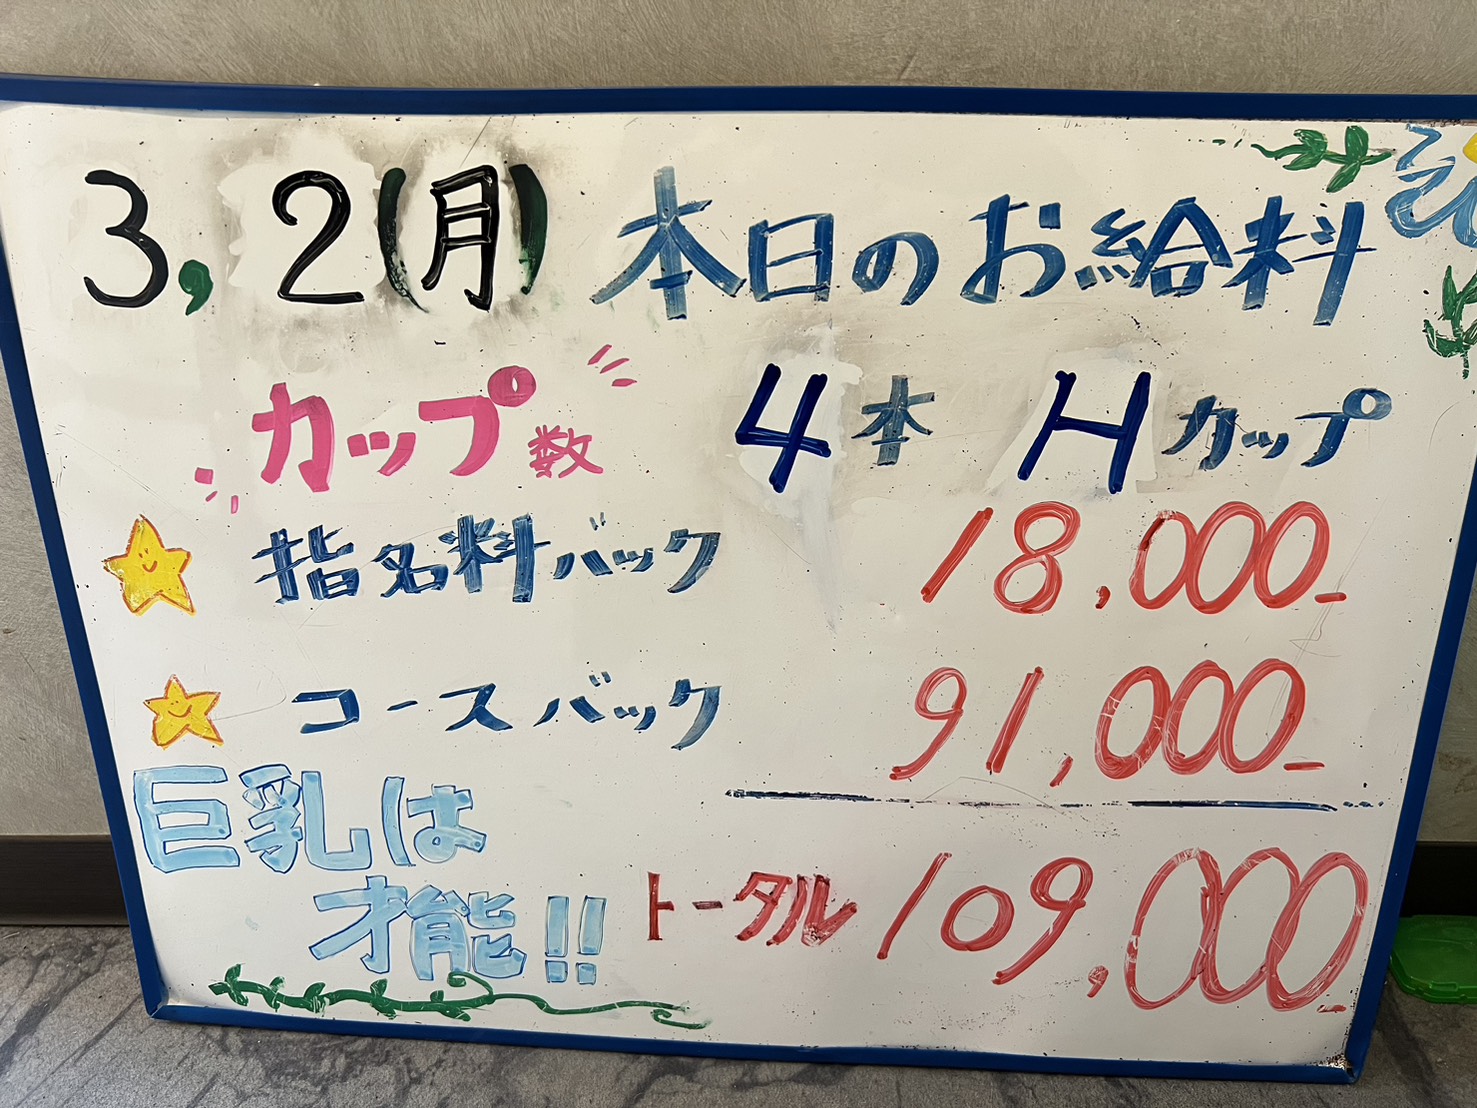 3,2(月) 本日のお給料
カップ数 4本 Hカップ
指名料バック 18,000-
コースバック 91,000-
巨乳は
才能!!
トータル 109,000-